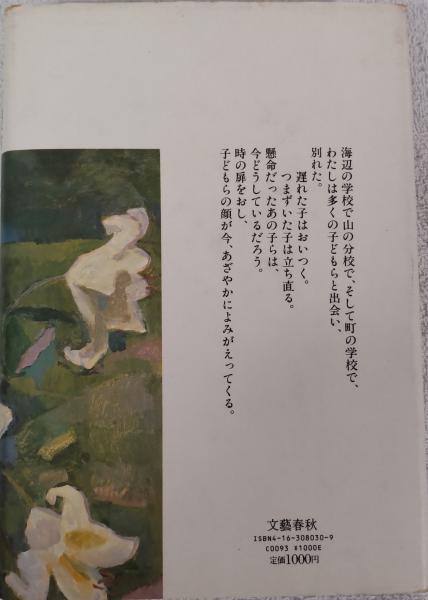 海辺の学校で山の分校で、そして町の学校で、
わたしは多くの子どもらと出会い、
別れた。
遅れた子はおいつく。
つまずいた子は立ち直る。
懸命だったあの子らは、
今どうしているだろう。
時の扉をおし、
子どもらの顔が今、あざやかによみがえってくる。
文藝春秋
ISBN4-16-308030-9
C0093 ¥1000E
定価1000円